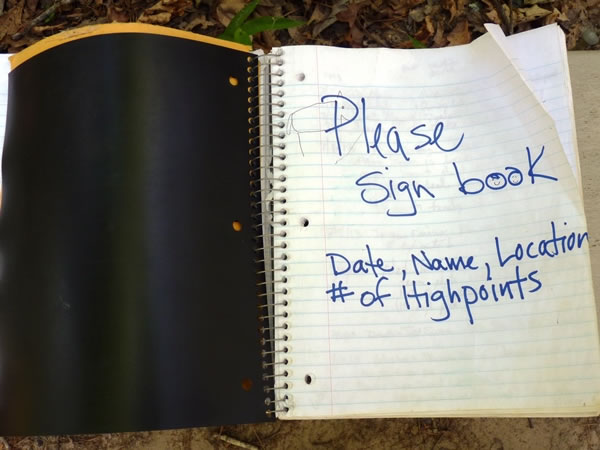 Please
Sign book
Date, Name, Location
# of Highpoints